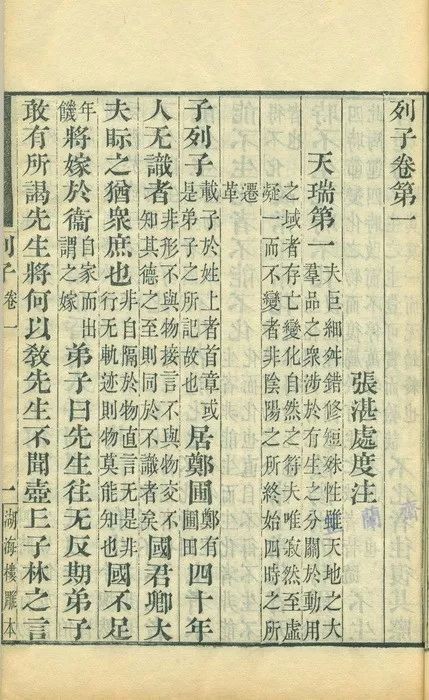 列子卷第一
張湛處度注
天瑞第一 夫巨細舛錯修短殊性雖天地之大
羣品之衆涉於有生之分關於動用
之域者存亡變化自然之符夫唯寂然至虛
凝一而不變者非陰陽之所終始四時之所
遷
革
子列子 載子於姓上者首章或 是弟子之所記故也 居鄭圃 鄭有 圃田 四十年
人无識者 非形不與物接言不與物交不 知其德之至則同於不識者矣 國君卿大
夫眎之猶衆庶也 非自隔於物直言無是非 行无軌迹則物莫能知也 國不足
年 饑 將嫁於衞 自家而出 謂之嫁 弟子曰先生往无反期弟子
敢有所謁先生將何以敎先生不聞壺丘子林之言
列子 卷一 一 湖海樓雕本